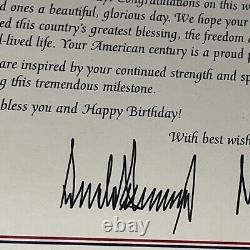 Congratulations on this w
d ones a beautiful, glorious day. We hope your
ed this country's greatest blessing, the freedom a
l-lived life. Your American century is a proud p
are inspired by your continued strength and sp
g this tremendous milestone.
bless you and Happy Birthday!
With best wish